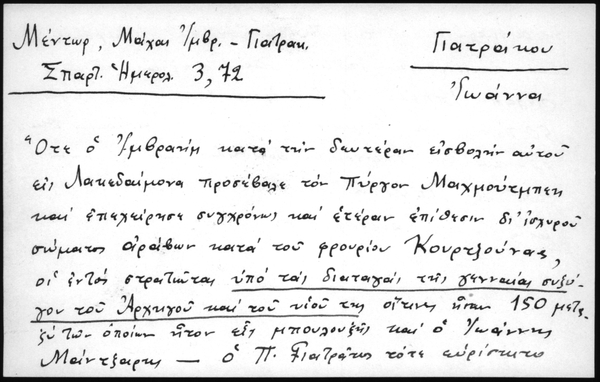 Μέντωρ, Μάχαι Ἰμβρ. - Γιατρακ.
Σπαρτ. Ἡμερολ. 3, 72
Γιατράκου
Ἰωάννα
"Ότε ὁ Ἰμβραήμ κατά τήν δευτέραν εἰσβολήν αὐτοῦ
εἰς Λακεδαίμονα προσέβαλε τόν Πύργον Μαχμούτμπεη
καί ἐπεχείρησε συγχρόνως καί ἑτέραν ἐπίθεσιν δι' ἰσχυροῦ
σώματος ἀράβων κατά τοῦ φρουρίου Κουρτζούνας,
οἱ ἐντός στρατιῶται ὑπό τάς διαταγάς τῆς γενναίας συζύ-
γου τοῦ Ἀρχηγοῦ καί τοῦ υἱοῦ της οἵτινες ἦσαν 150 μετα-
ξύ τῶν ὁποίων ἦτον εἷς μπουλουξῆς καί ὁ Ἰωάννης
Μάντζαρης — ὁ Π. Γιατρᾶκος τότε εὑρίσκετο